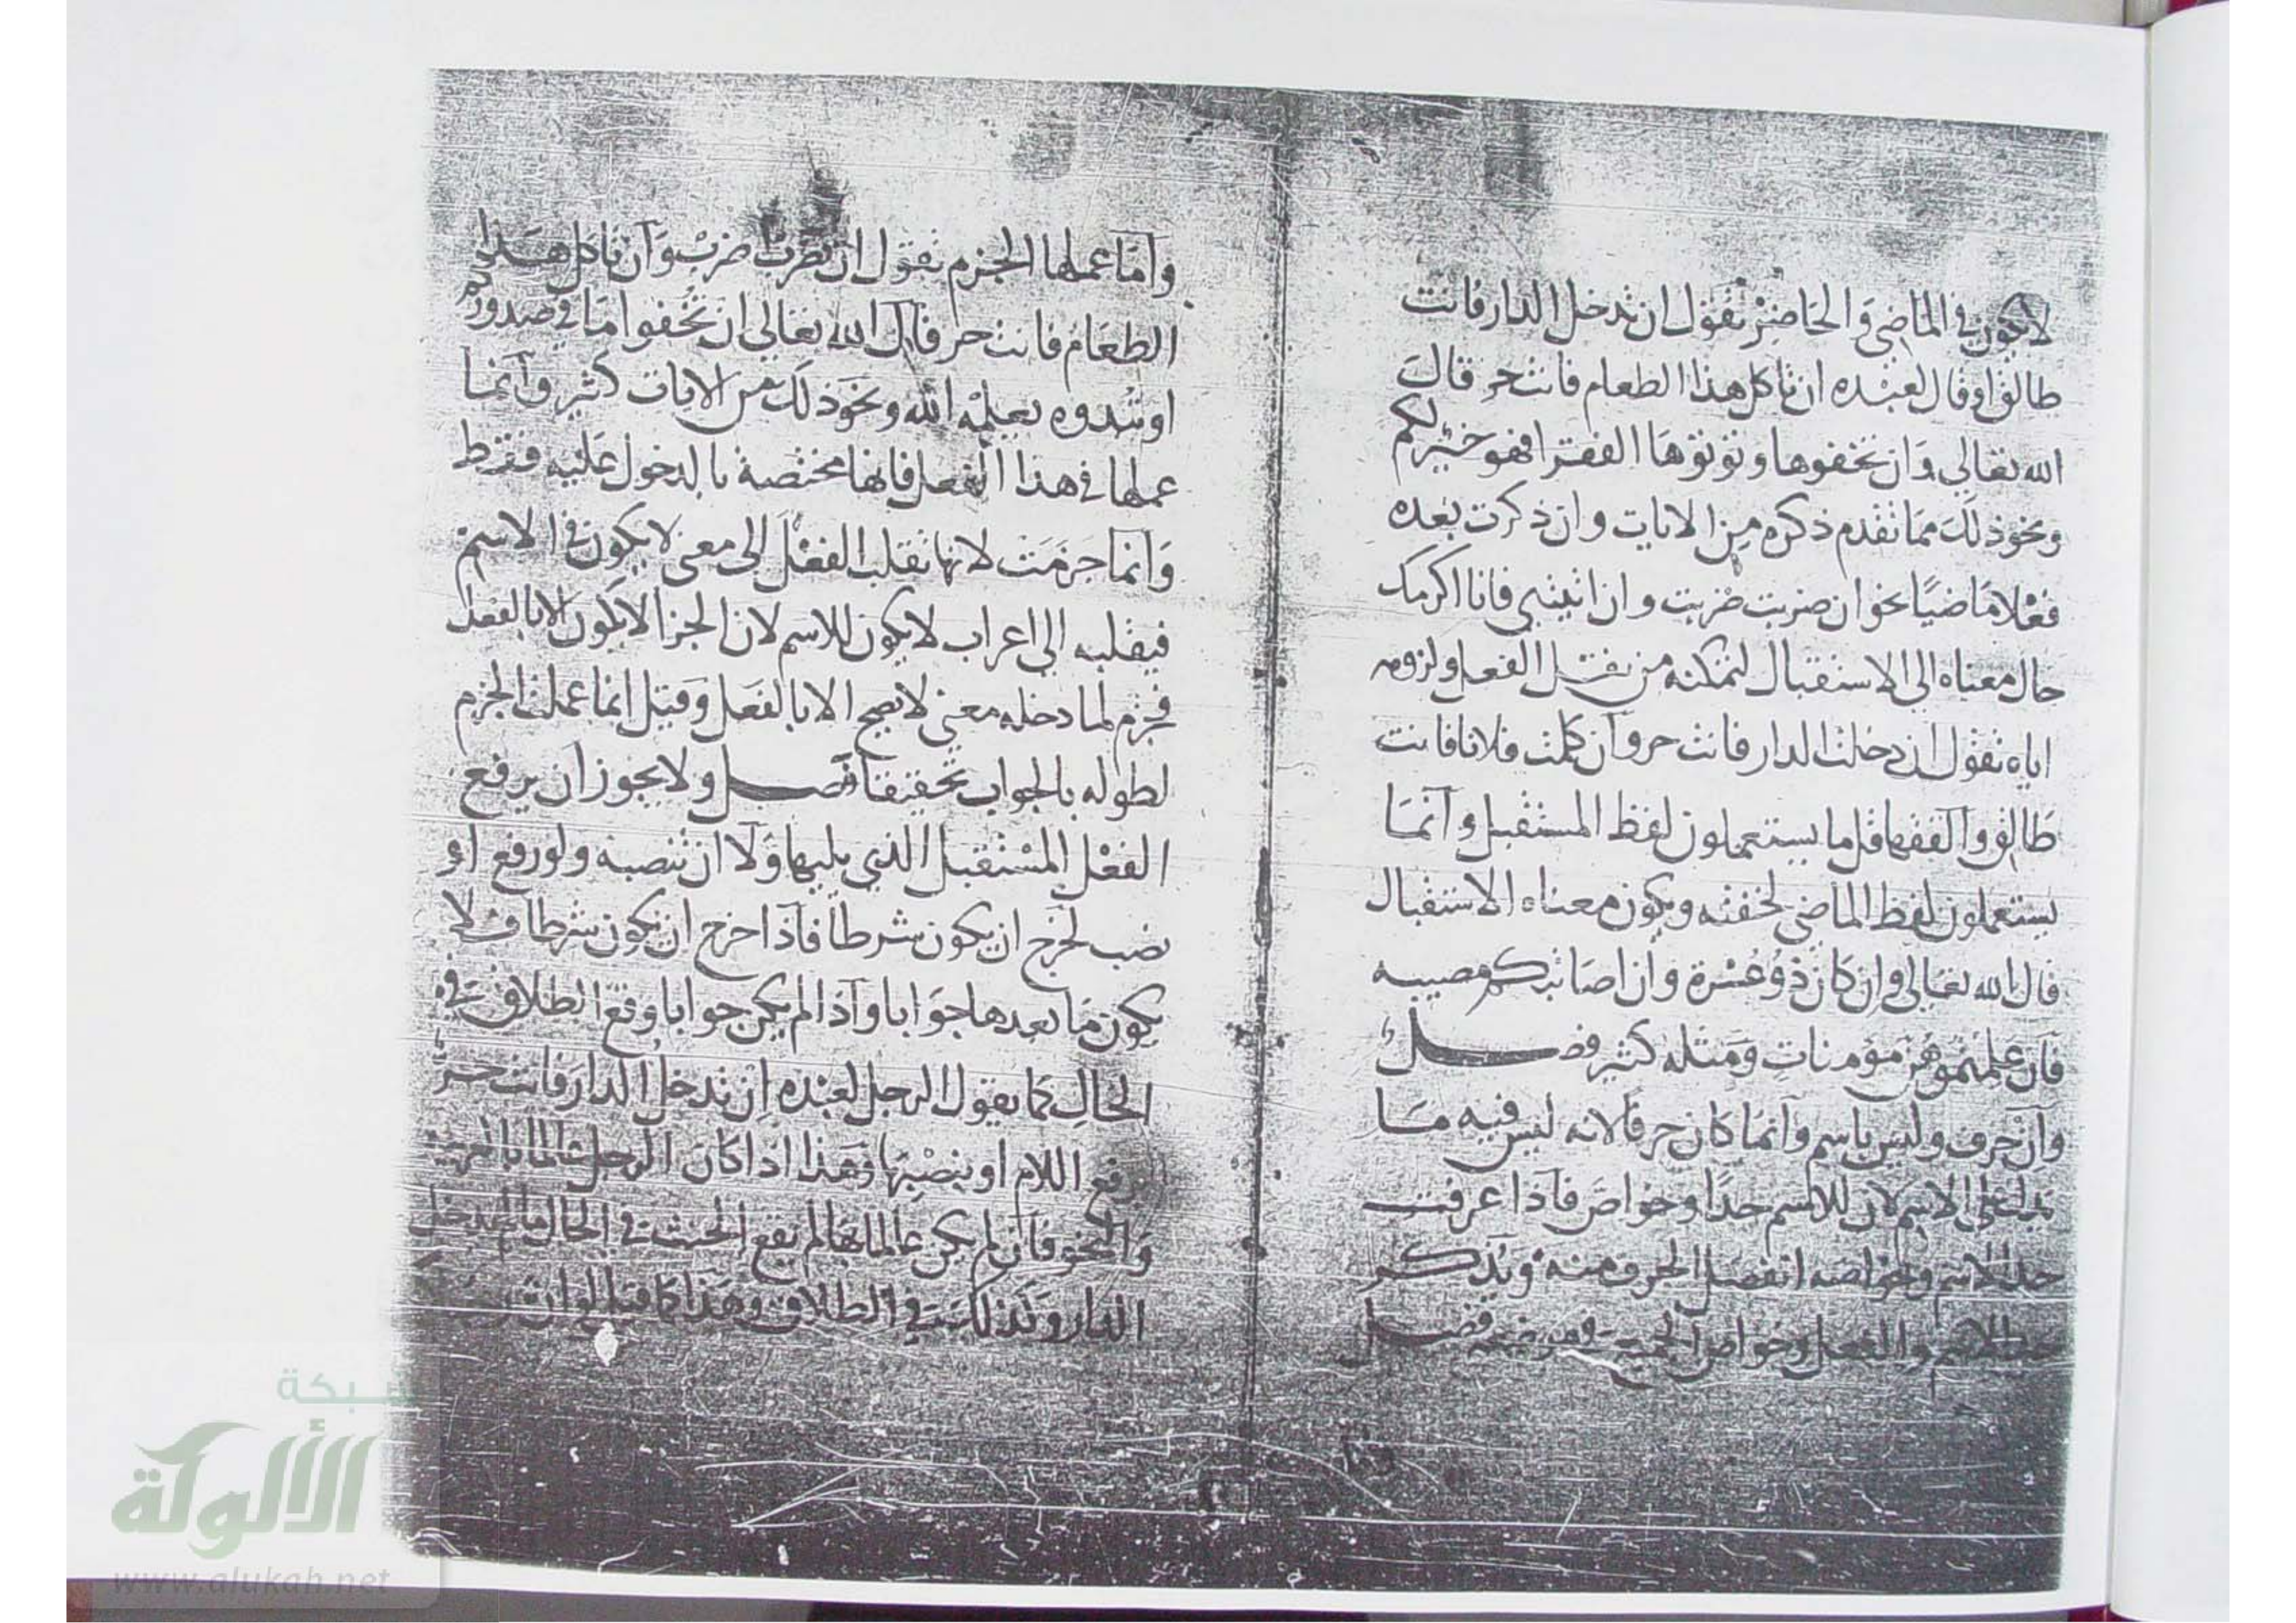 لا يكون في الماضي والحاضر تقول ان تدخل الدار فانت
طالق او قال لعبده ان تاكل هذا الطعام فانت حر قال
الله تعالى وان تخفوها وتوتوها الفقرا فهو خير لكم
ونحو ذلك مما تقدم ذكره من الايات وان ذكرت بعده
فعلا ماضيا نحو ان ضربت ضربت وان اتيتني فانا اكرمك
حال معناه الى الاستقبال لتمكنه من نقل الفعل ولزومه
اياه تقول ان دخلت الدار فانت حر وان كلمت فلانا فانت
طالق والفقها قل ما يستعملون لفظ المستقبل وانما
يستعملون لفظ الماضي لخفته ويكون معناه الاستقبال
قال الله تعالى وان كان ذو عسرة وان اصابتكم مصيبه
فان علمتموهن مؤمنات ومثله كثير فصل
وان حرف وليس باسم وانما كان حرفا لانه ليس فيه ما
يدل على الاسم لان للاسم حدا وخواص فاذا عرفت
حد الاسم وخواصه انفصل الحرف منه ويذكر
حد الاسم والفعل وخواص فصل
واما عملها الجزم تقول ان تضرب ضرب وان تاكل هذا
الطعام فانت حر قال الله تعالى ان تخفوا ما في صدوركم
او تبدوه يعلمه الله ونحو ذلك من الايات كثير وانما
عملها في هذا الفعل فانها مختصة بالدخول عليه فقط
وانما جزمت لانها تقلب الفعل الى معنى لا يكون في الاسم
فيقلبه الى اعراب لا يكون للاسم لان الجزا لا يكون الا بالفعل
فجزم لما دخله معنى لا يصح الا بالفعل وقيل انما عملت الجزم
لطوله بالجواب تخفيفا فصل ولا يجوز ان يرفع
الفعل المستقبل الذي يليها ولا ان تنصبه ولو رفع او
نصب لخرج ان يكون شرطا فاذا خرج ان يكون شرطا فلا
يكون ما بعدها جوابا واذا لم يكن جوابا وقع الطلاق في
الحال كما يقول الرجل لعبده ان تدخل الدار فانت حر
يرفع اللام او ينصبها وهذا اذا كان الرجل عالما بالعربية
والنحو فان لم يكن عالما بها لم يقع الحنث في الحال ما لم يدخل
الدار وكذلك في الطلاق وهذا كما قيل
شبكة
الألوكة
www.alukah.net